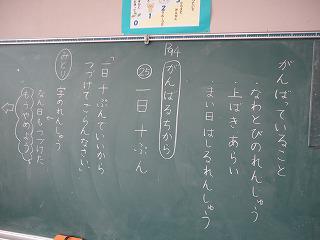 がんばっていること
・なわとびのれんしゅう
・上ばきあらい
・まい日はしるれんしゅう
P94
がんばるちから
㉕ 一日十ぷん
「一日十ぷんでいいから
つづけてごらんなさい」
みどり
字のれんしゅう
なん日もつづけた
もうやめよう